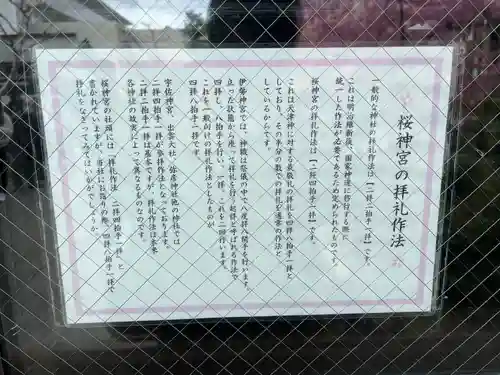 桜神宮の拝礼作法
一般的な神社の拝礼作法は【二拝二拍手一拝】です。
これは明治維新後、国家神道に移行する際に
統一した作法が必要であるため定められたものです。
桜神宮の拝礼作法は【二拝四拍手一拝】です。
これは天津神に対する最敬礼の拝礼を四拝八拍手一拝と
しており、その半分の数での拝礼を通常の作法と
しているからです。
伊勢神宮では、神職は祭儀の中で八度拝八開手を行います。
立った状態から座って拝礼を行う起拝と呼ばれる作法で
四拝し、八拍手を打ち、一拝し、これを二回行います。
これを一般向けの拝礼作法としたものが
四拝八拍手一拝です。
宇佐神宮、出雲大社、弥彦神社他の神社では
二拝四拍手一拝が参拝作法となっております。
二拝二拍手一拝は基本ですが、拝礼作法は本来
各神社の故実によって異なるものなのです。
桜神宮の社頭には「拝礼作法 二拝四拍手一拝」と
書かれていますが、当社にお詣りの際、四拝八拍手一拝で
拝礼をなさってみてはいかがでしょうか。